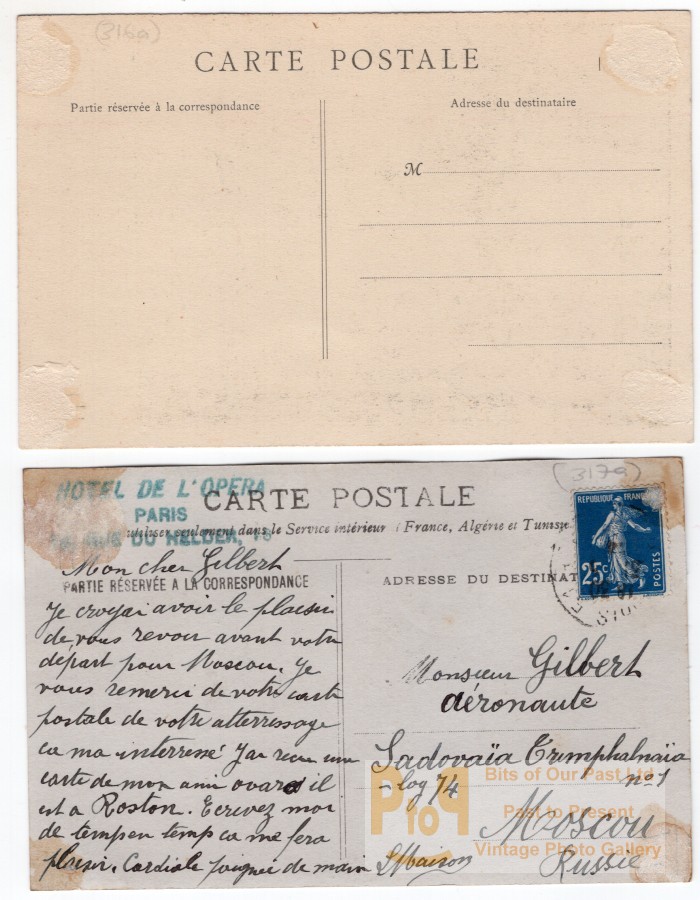 (316a)
CARTE POSTALE
Partie réservée à la correspondance
Adresse du destinataire
M
(317a)
HOTEL DE L'OPERA
PARIS
RUE DU HELDER, 16
CARTE POSTALE
utiliser seulement dans le Service intérieur (France, Algérie et Tunisie
PARTIE RÉSERVÉE A LA CORRESPONDANCE
ADRESSE DU DESTINAT
REPUBLIQUE FRAN
25c
POSTES
PARIS
Mon cher Gilbert
Je croyai avoir le plaisir
de vous revoir avant votre
départ pour Moscou. Je
vous remerci de votre carte
postale de votre atterressage
ca ma interressé J'ai recu une
carte de mon ami il
est a Roston. Ecrivez moi
de temp en temp ca me fera
plaisir. Cordiale poignee de main
LMaison
Monsieur Gilbert
aéronaute
Sadovaïa Trimphalnaïa
log 74 n°1
Moscou
Russie
PtoP
Bits of Our Past Ltd
Past to Present
Vintage Photo Gallery